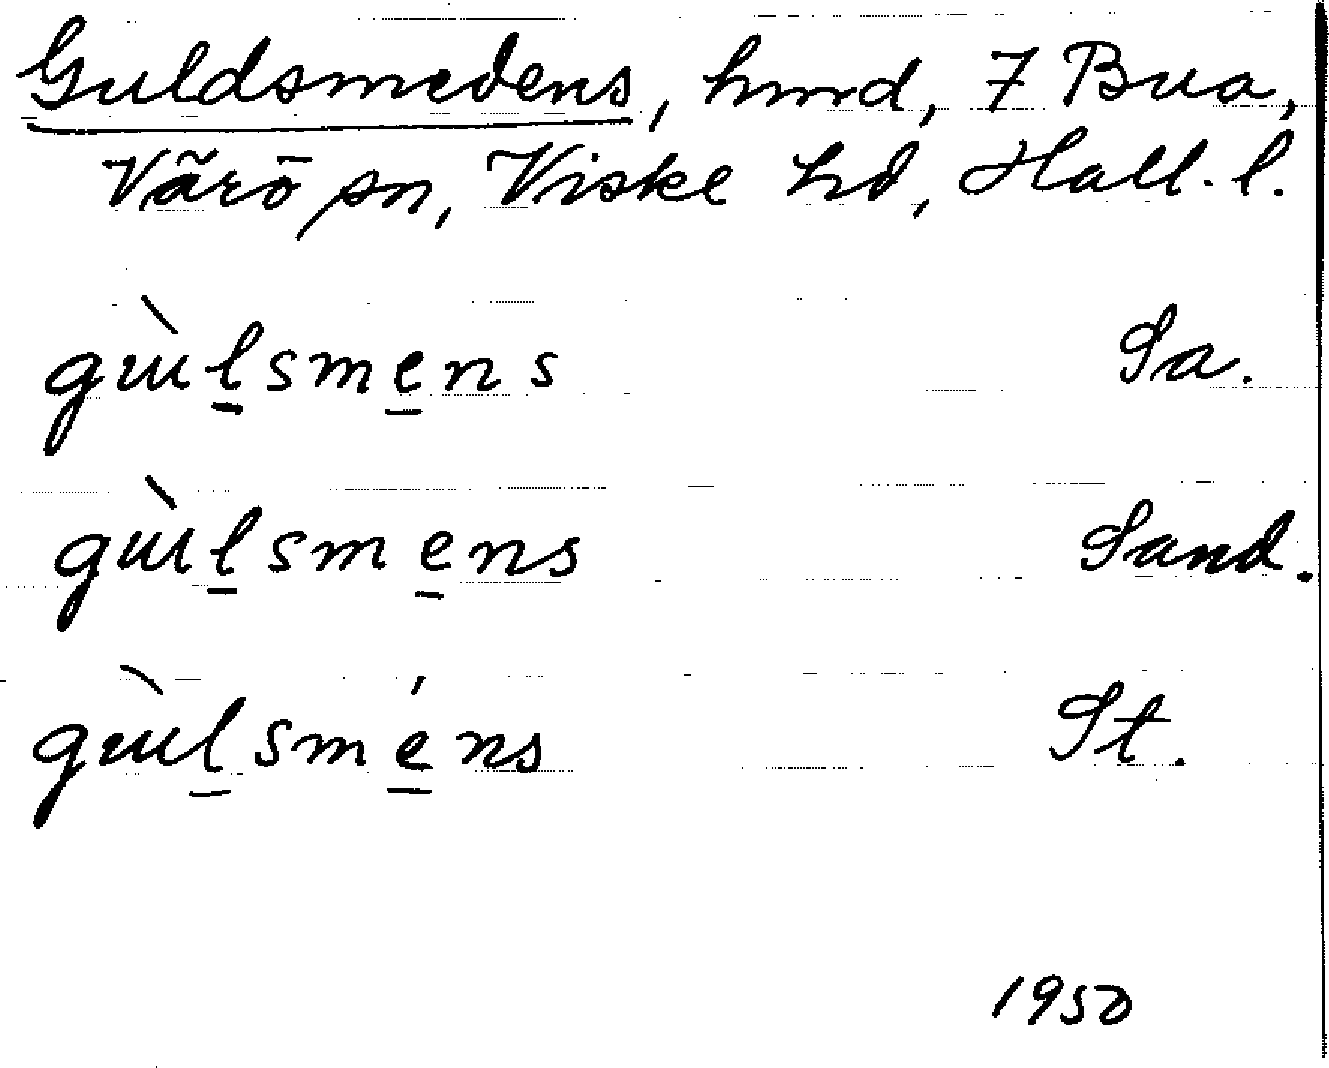 Guldsmedens, hmd, 7 Bua,
Värö sn, Viske hd, Hall. l.
gùlsmens Sa.
gùlsmens Sand.
gùlsméns St.
1950